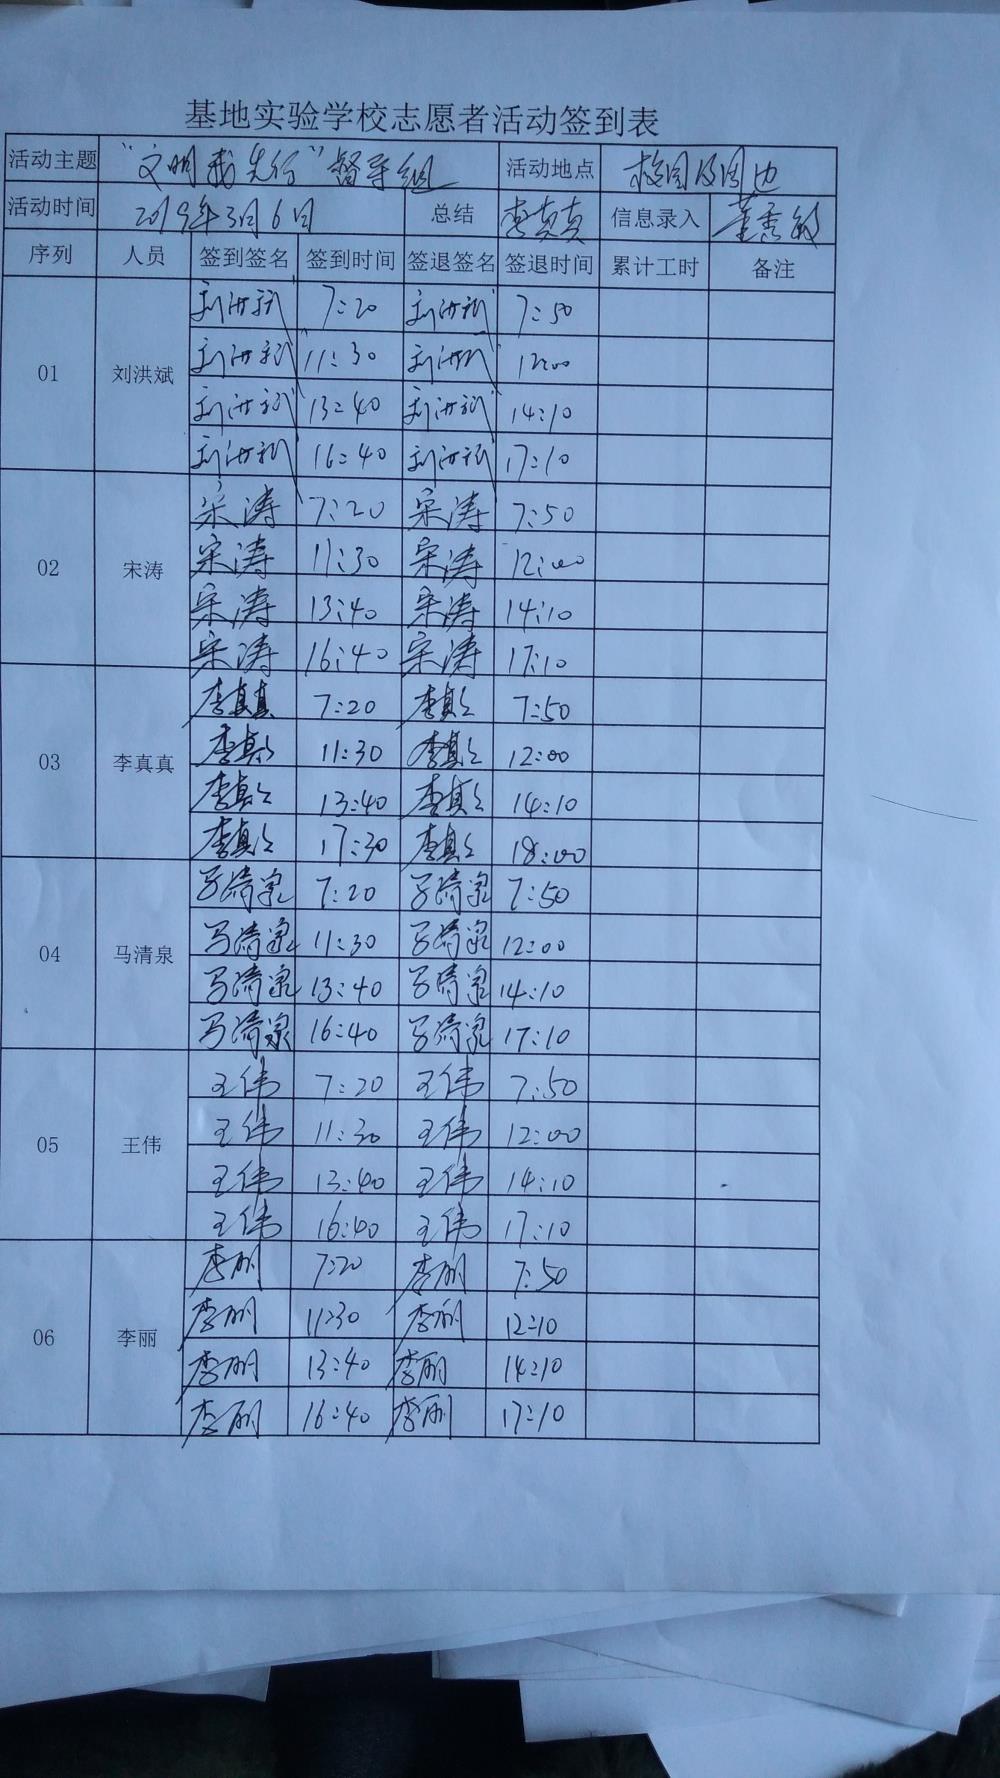 基地实验学校志愿者活动签到表
活动主题 “文明我先行”督导组 活动地点 校园及周边
活动时间 2019年3月6日 总结 李真真 信息录入 董秀敏
序列 人员 签到签名 签到时间 签退签名 签退时间 累计工时 备注
刘洪斌 7:20 刘洪斌 7:50
刘洪斌 11:30 刘洪斌 12:00
01 刘洪斌
刘洪斌 13:40 刘洪斌 14:10
刘洪斌 16:40 刘洪斌 17:10
宋涛 7:20 宋涛 7:50
宋涛 11:30 宋涛 12:00
02 宋涛
宋涛 13:40 宋涛 14:10
宋涛 16:40 宋涛 17:10
李真真 7:20 李真真 7:50
李真真 11:30 李真真 12:00
03 李真真
李真真 13:40 李真真 14:10
李真真 17:30 李真真 18:00
马清泉 7:20 马清泉 7:50
马清泉 11:30 马清泉 12:00
04 马清泉
马清泉 13:40 马清泉 14:10
马清泉 16:40 马清泉 17:10
王伟 7:20 王伟 7:50
王伟 11:30 王伟 12:00
05 王伟
王伟 13:40 王伟 14:10
王伟 16:40 王伟 17:10
李丽 7:20 李丽 7:50
李丽 11:30 李丽 12:10
06 李丽
李丽 13:40 李丽 14:10
李丽 16:40 李丽 17:10